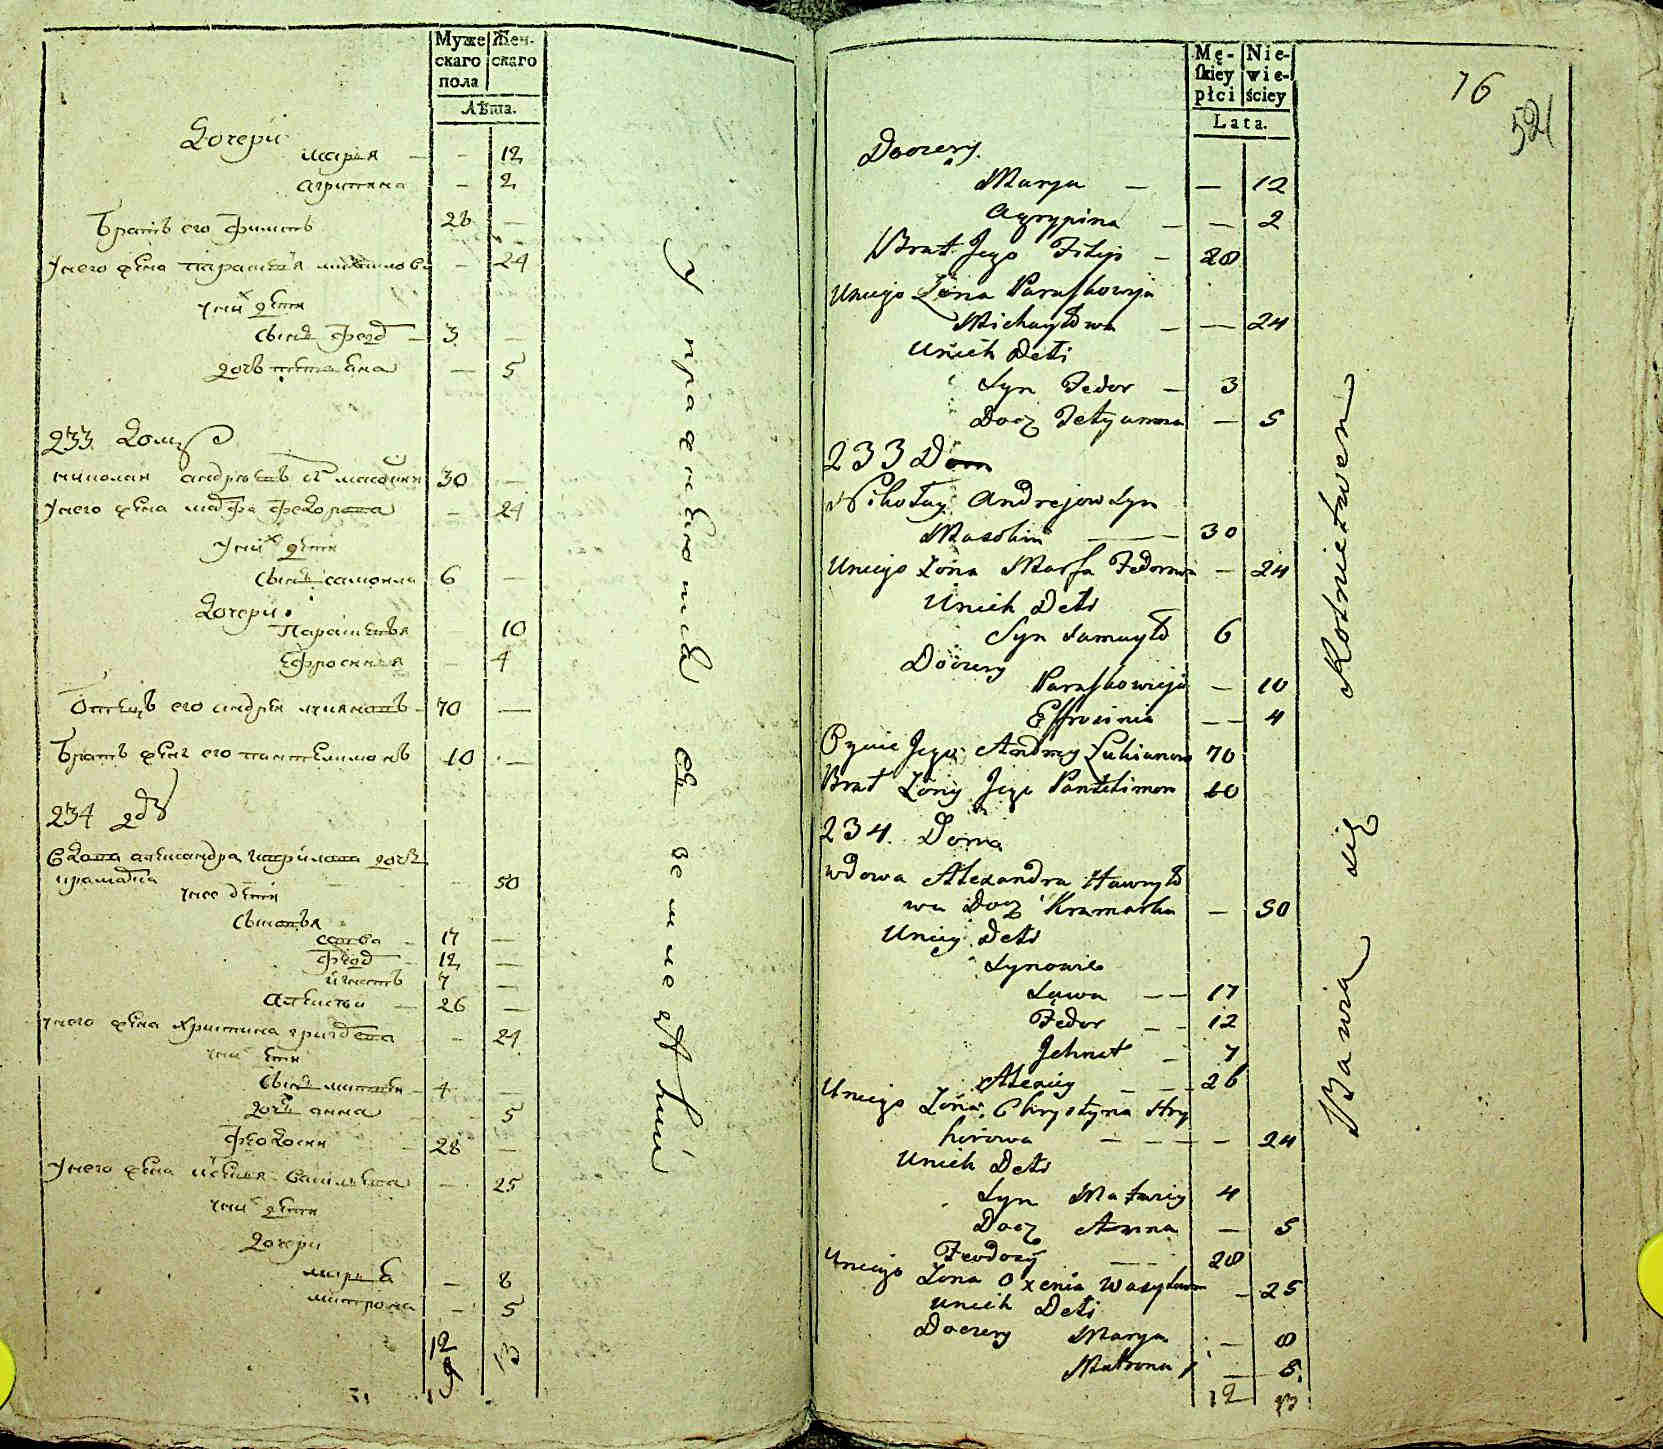 Муже Жен-
скаго скаго
пола
Лѣта.
Дочери
Марья — — 12
Агрипина — 2
Братъ его Филипъ 28 —
Унего жена Параскевья Михайлова — 24
унихъ дети
сынъ Федоръ — 3 —
дочь Татьяна — 5
233 Домъ
Николай Андреевъ сынъ 30 —
Унего жена Марфа Федорова — 24
Унихъ дети
сынъ Самойла 6 —
Дочери
Параскевья 10
Ефросинья — 4
Отецъ его Андрей Лукяновъ — 70 —
Братъ жены его Пантелимонъ 10 —
234 дворъ
Вдова Александра Гаврилова дочь
Крамарка — 50
унее дети
Сыновья
Савва — 17 —
Федоръ — 12 —
Игнатъ 7 —
Алексей — 26 —
унего жена Христина Григорева — 24
унихъ дети
Сынъ Матвей — 4 —
дочь Анна — 5
Феодосий 28 —
Унего жена Ксенья Васильева — 25
унихъ дети
Дочери
Марья — 8
Матрона — 5
12 13
Упражняются въ земледѣлии
Mę- Nie-
skiey wie-
płci ściey
Lata.
76
521
Doczery
Marya — — 12
Agrypina — — 2
Brat Jego Filip — 28
Uniego Zona Paraskowija
Michayłowa — — 24
Unich Deti
Syn Fedor — 3
Docz Tetyanna — 5
233 Dom
Nikołay Andrejow Syn
30
Uniego Zona Marfa Fedorowa — 24
Unich Deti
Syn Samuyło 6
Doczery
Paraskowieja — 10
Effrosinia — — 4
Oyciec Jego Andrey Lukianow 70
Brat Zony Jego Pantelimon 10
234. Doma
wdowa Alexandra Hawryło
wa Docz Kramarka — 50
Uniey Deti
Synowie
Sawa — — 17
Fedor — — 12
Jehnat — 7
Alexiey — — 26
Uniego Zona Chrystyna Hry
horowa — — — — 24
Unich Deti
Syn Matwiey 4
Docz Anna — 5
Feodosiy — — 28
Uniego Zona Oxenia Wasylowa — 25
Unich Deti
Doczery Marya — 8
Matrona — 5
12 13
Bawią się Rolnictwem